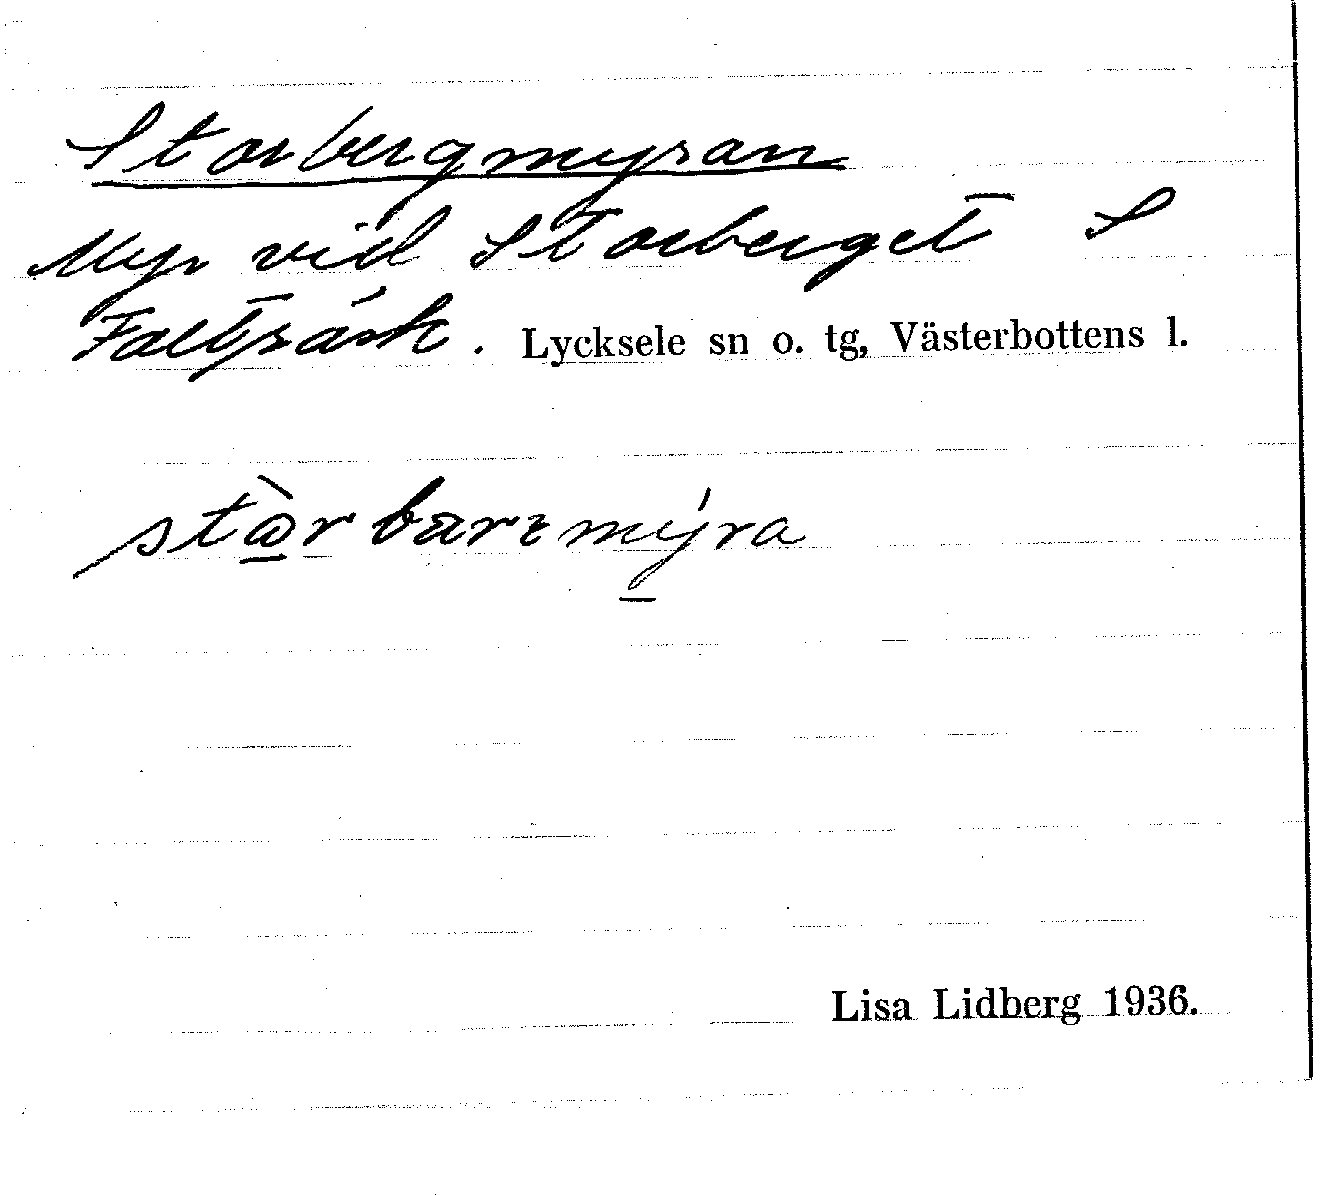 Storbergmyran
Myr vid Storberget S
Faltjräsk. Lycksele sn o. tg, Västerbottens l.
Lisa Lidberg 1936.